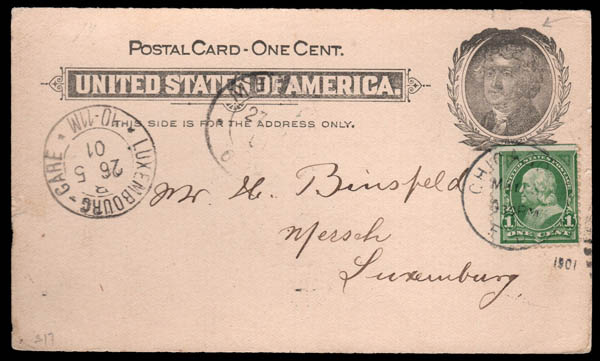 POSTAL CARD - ONE CENT.
UNITED STATES OF AMERICA.
THIS SIDE IS FOR THE ADDRESS ONLY.
LUXEMBOURG-GARE * 10-11M *
26 5
01
27
CHICA
Mr. H. Binsfeld
Mersch
Luxemburg
UNITED STATES POSTAGE
1 1
ONE CENT
1901
317